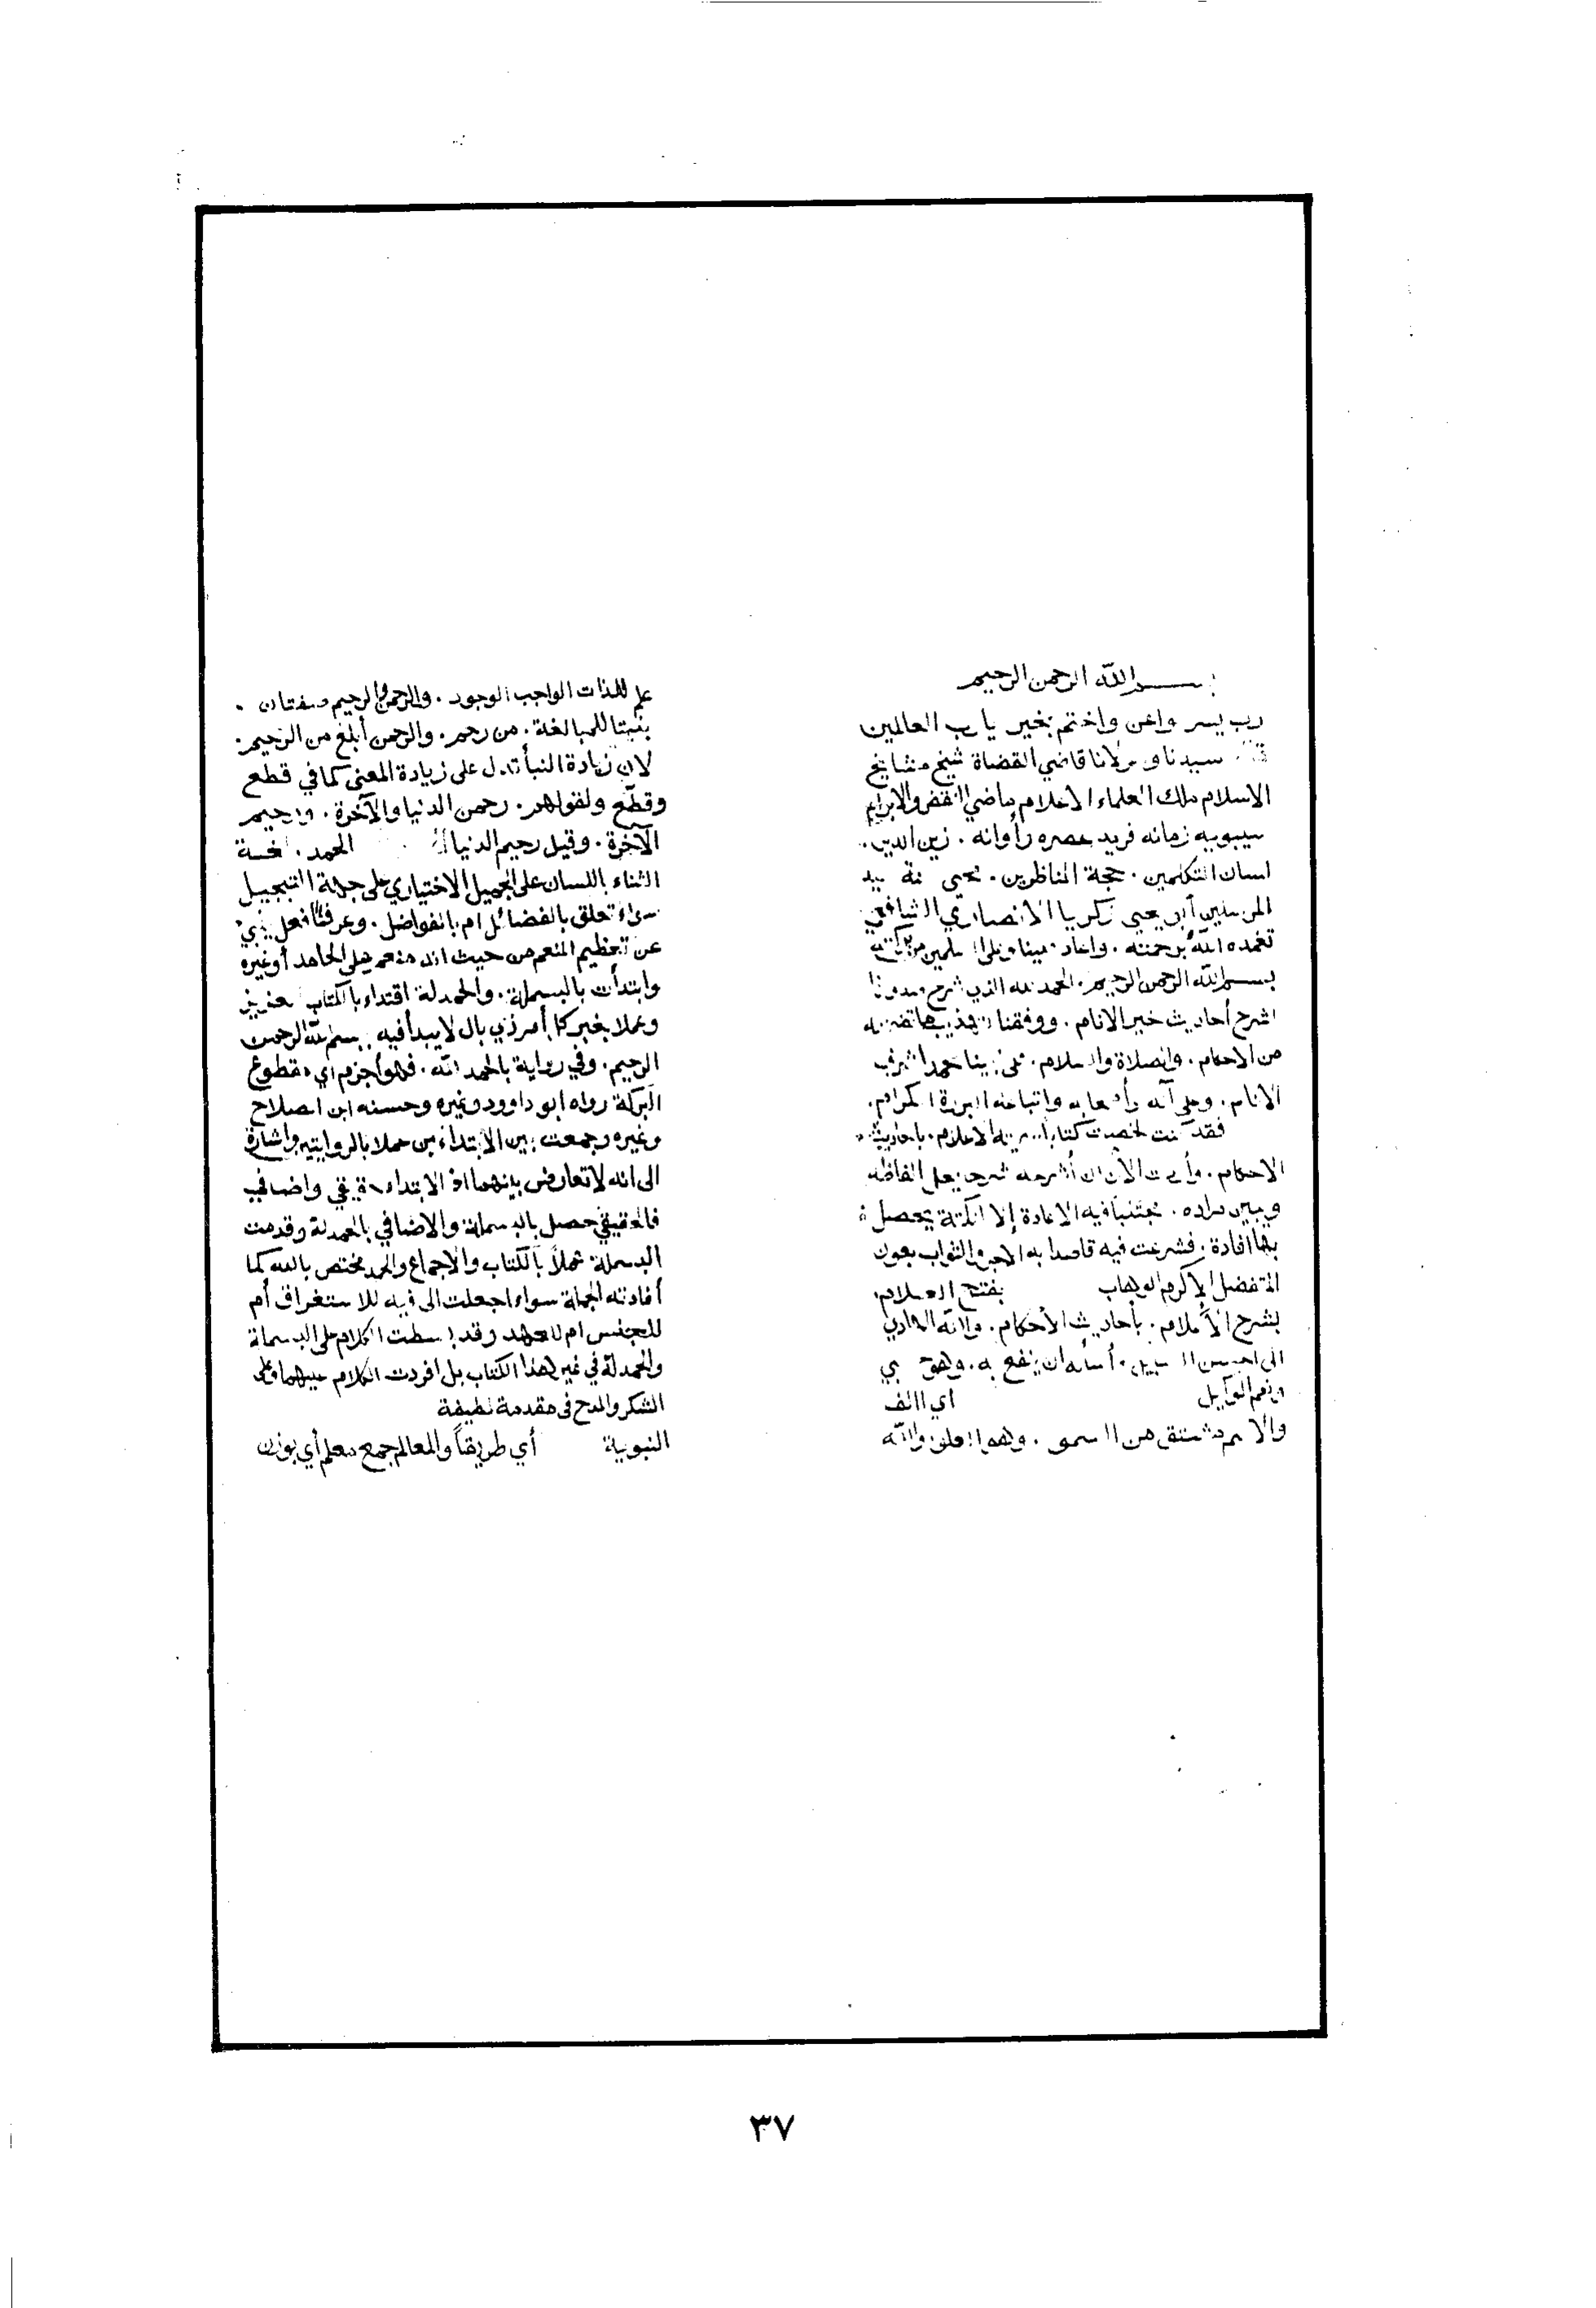 بسم الله الرحمن الرحيم
رب يسر واعن واختم بخير يا رب العالمين
سيدنا ومولانا قاضي القضاة شيخ مشايخ
الاسلام ملك العلماء الاعلام ماضي النقض والابرام
سيبويه زمانه فريد عصره وأوانه . زين الدين .
لسان المتكلمين . حجة المناظرين . محيي
المرسلين أبي يحيى زكريا الانصاري الشافعي
تغمده الله برحمته . واعاد علينا وعلى المسلمين من بركته
بسم الله الرحمن الرحيم . الحمد لله الذي شرح صدورنا
لشرح أحاديث خير الانام . ووفقنا
من الاحكام . والصلاة والسلام . على نبينا محمد اشرف
الانام . وعلى آله وأصحابه واتباعه البررة الكرام .
فقد كنت لخصت كتابا الاعلام . باحاديث
الاحكام . وأردت الآن ان أشرحه شرحا يحل الفاظه
ويبين مراده . مجتنبا فيه الاعادة إلا لنكتة يحصل
بها افادة . فشرعت فيه قاصدا به الاجر والثواب بعون
المتفضل الاكرم الوهاب بفتح العلام
بشرح الأعلام . بأحاديث الأحكام . والله الهادي
الى احسن السبيل . أسأله ان ينفع به . وهو حسبي
ونعم الوكيل أي أألف
والاسم مشتق من السمو . وهو العلو . والله
علم للذات الواجب الوجود . والرحمن والرحيم صفتان .
بنيتا للمبالغة . من رحم . والرحمن أبلغ من الرحيم .
لان زيادة البنأ تدل على زيادة المعنى كما في قطع
وقطّع ولقولهم . رحمن الدنيا والآخرة . ورحيم
الآخرة . وقيل رحيم الدنيا الحمد .
الثناء باللسان على الجميل الاختياري على جهة التبجيل
سواء تعلق بالفضائل ام بالفواضل . وعرفاً فعل ينبي
عن تعظيم المنعم من حيث انه منعم على الحامد أو غيره
وابتدأت بالبسملة . والحمدلة اقتداء بالكتاب العزيز
وعملا بخبر كل أمر ذي بال لا يبدأ فيه ببسم الله الرحمن
الرحيم . وفي رواية بالحمد لله . فهو أجزم أي مقطوع
البركة رواه ابو داوود وغيره وحسنه ابن الصلاح
وغيره وجمعت بين الابتداءين عملا بالروايتين واشارة
الى انه لا تعارض بينهما اذ الابتداء حقيقي واضافي
فالحقيقي حصل بالبسملة والاضافي بالحمدلة وقدمت
البسملة عملاً بالكتاب والاجماع والحمد مختص بالله كما
أفادته الجملة سواء اجعلت ال فيه للاستغراق أم
للجنس ام للعهد وقد بسطت الكلام على البسملة
والحمدلة في غير هذا الكتاب بل افردت الكلام عليهما وعلى
الشكر والمدح في مقدمة لطيفة
النبوية أي طريقاً والمعالم جمع معلم أي بوزن
٣٧